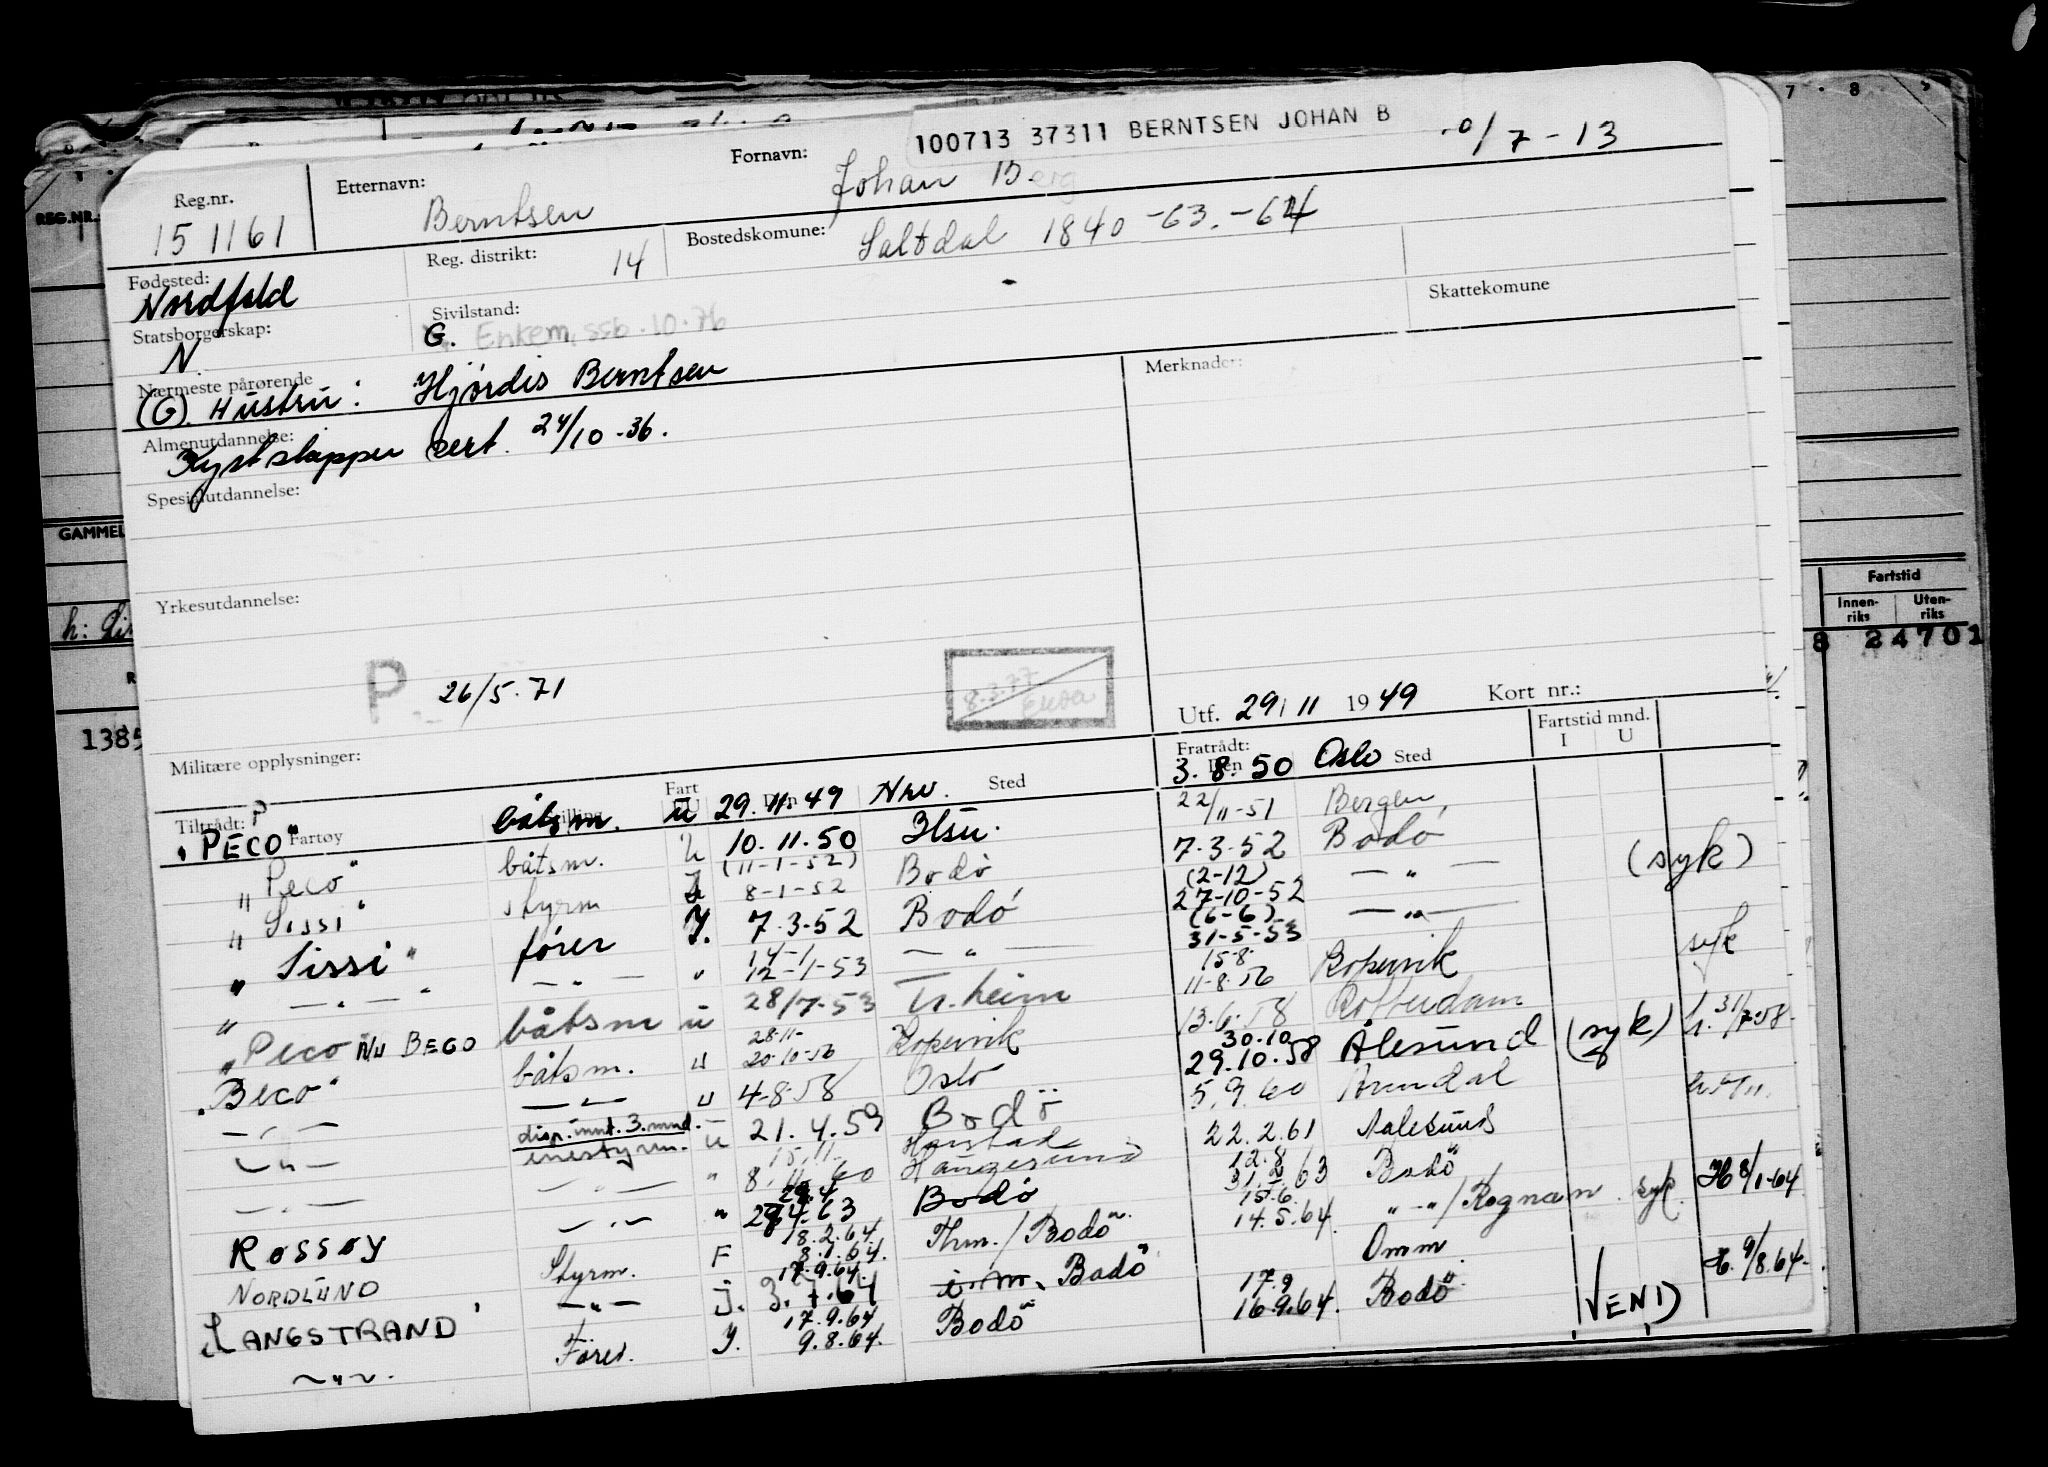 100713 37311 BERNTSEN JOHAN B
Reg.nr. Etternavn: Fornavn: 0/7-13
151161 Berntsen Johan Berg
Fødested: Reg. distrikt: Bostedskomune:
Nordfold 14 Saltdal 1840 -63.-64
Statsborgerskap: Sivilstand: Skattekomune
N. G. Enkem. ssb.10.76
Nærmeste pårørende Merknader:
(G). Hustru: Hjørdis Berntsen
Almenutdannelse:
Kystskipper cert. 24/10-36.
Spesialutdannelse:
Yrkesutdannelse:
P 26/5.71 8.3.77
Utf. 29/11 1949 Kort nr.:
Militære opplysninger:
Fratrådt: Fartstid mnd.
Tiltrådt: Fartøy Stilling Fart I/U Den Sted Den Sted I U
"PECO" båtsm. u 29.11.49 Nrv. 3.8.50 Oslo
"Peco" båtsm. u 10.11.50 Hsu. 22/11-51 Bergen,
"Sissi" styrm (11-1-52) 8-1-52 Bodø 7.3.52 Bodø
"Sissi" fører I. 7.3.52 Bodø (2-12) 27-10-52 — " — (syk)
— " — — " — " 14-1 12-1-53 — " — (6-6) 31-5-53 — " —
"Peco nu BECO båtsm u 28/7-53 Tr.heim 15-8- 11-8-56 Kopervik syk
"Beco" båtsm. u 28-11- 20-10-56 Kopervik 13.6.58 Rotterdam
— " — — " — u 4-8-58 Oslo 30.10 29.10.58 Ålesund (syk) h. 31/7-58-
— " — disp. innt. 3. mnd. enestyrm. u 21.4.59 Bodö 5.9.60 Arendal
— " — — " — " 15.11. 8.11.60 Harstad Haugesund 22.2.61 Aalesund
ROSSØY — " — " 29.4 63 Bodø 12.8 63 Bodö
NORDLUND Styrm. F 18.2.64. 8.1.64. Thm./Bodö 15.6. 14.5.64. " - "/Rognan syk. H 8/1-64
"LANGSTRAND" — " — j. 17.9.64. 64 i.m. Bodö Omm
— " — Förer. I. 17.9.64 9.8.64. Bodö 17.9 16.9.64. Bodö H. 9/8.64-
VEND
REG.NR.
GAMMEL
1385
7 . 8
Fartstid
Innen-riks Uten-riks
8 24701